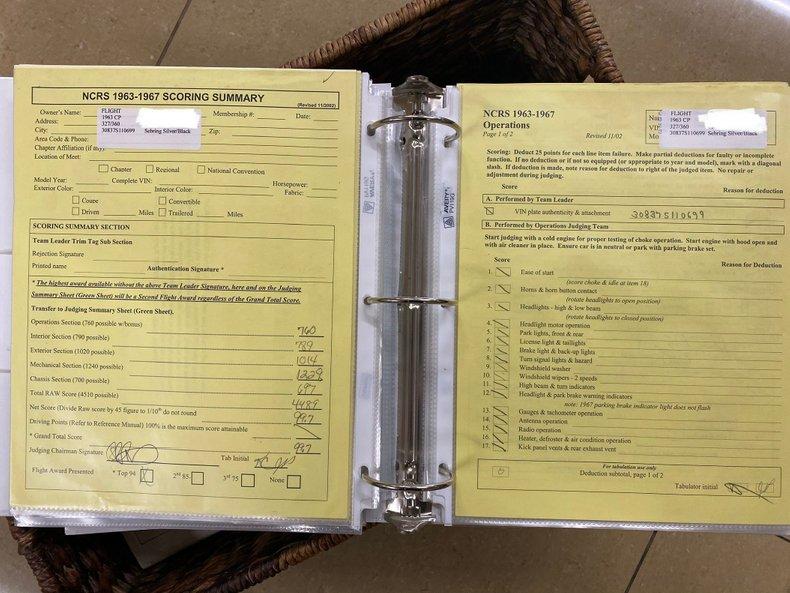 NCRS 1963-1967 SCORING SUMMARY
(Revised 11/2002)
Owner's Name:
FLIGHT
Membership #:
Date:
Address:
1963 CP
327/360
City:
30837S110699 Sebring Silver/Black
Zip:
Area Code & Phone:
Chapter Affiliation (if any)
Location of Meet:
Chapter Regional National Convention
Model Year: Complete VIN: Horsepower:
Exterior Color: Interior Color: Fabric:
Coupe Convertible
Driven Miles Trailered Miles
SCORING SUMMARY SECTION
Team Leader Trim Tag Sub Section
Rejection Signature
Printed name Authentication Signature *
* The highest award available without the above Team Leader Signature, here and on the Judging
Summary Sheet (Green Sheet) will be a Second Flight Award regardless of the Grand Total Score.
Transfer to Judging Summary Sheet (Green Sheet).
Operations Section (760 possible w/bonus) 760
Interior Section (790 possible) 789
Exterior Section (1020 possible) 1014
Mechanical Section (1240 possible) 1229
Chassis Section (700 possible) 697
Total RAW Score (4510 possible) 4489
Net Score (Divide Raw score by 45 figure to 1/10th do not round 99.7
Driving Points (Refer to Reference Manual) 100% is the maximum score attainable
* Grand Total Score 99.7
Judging Chairman Signature Tab Initial
Flight Award Presented * Top 94 2nd 85 3rd 75 None
NCRS 1963-1967
Operations
Page 1 of 2
Revised 11/02
FLIGHT
1963 CP
327/360
30837S110699 Sebring Silver/Black
Scoring: Deduct 25 points for each line item failure. Make partial deductions for faulty or incomplete
function. If no deduction or if not so equipped (or appropriate to year and model), mark with a diagonal
slash. If deduction is made, note reason for deduction to right of the judged item. No repair or
adjustment during judging.
Score Reason for deduction
A. Performed by Team Leader
VIN plate authenticity & attachment 30837S110699
B. Performed by Operations Judging Team
Start judging with a cold engine for proper testing of choke operation. Start engine with hood open and
with air cleaner in place. Ensure car is in neutral or park with parking brake set.
Score Reason for Deduction
1. Ease of start
(score choke & idle at item 18)
2. Horns & horn button contact
(rotate headlights to open position)
3. Headlights - high & low beam
(rotate headlights to closed position)
4. Headlight motor operation
5. Park lights, front & rear
6. License light & taillights
7. Brake light & back-up lights
8. Turn signal lights & hazard
9. Windshield washer
10. Windshield wipers - 2 speeds
11. High beam & turn indicators
12. Headlight & park brake warning indicators
note: 1967 parking brake indicator light does not flash
13. Gauges & tachometer operation
14. Antenna operation
15. Radio operation
16. Heater, defroster & air condition operation
17. Kick panel vents & rear exhaust vent
For tabulation use only
0 Deduction subtotal, page 1 of 2
Tabulator initial
AVERY